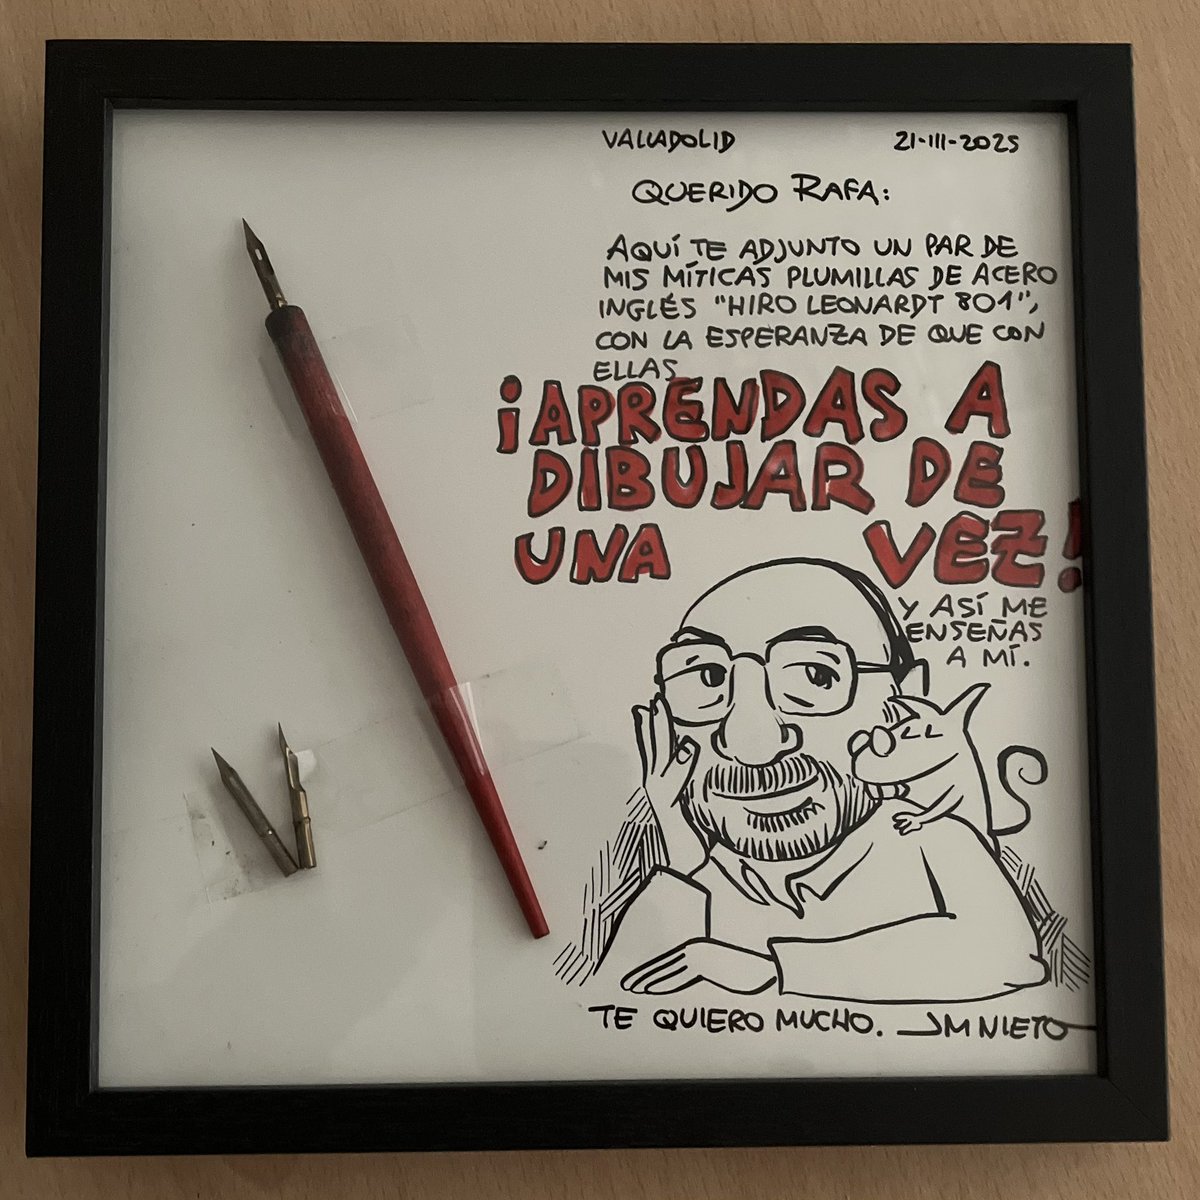 VALLADOLID 21-III-2025
QUERIDO RAFA:
AQUÍ TE ADJUNTO UN PAR DE
MIS MÍTICAS PLUMILLAS DE ACERO
INGLÉS "HIRO LEONARDT 801",
CON LA ESPERANZA DE QUE CON
ELLAS
¡APRENDAS A
DIBUJAR DE
UNA VEZ!
Y ASÍ ME
ENSEÑAS
A MÍ.
TE QUIERO MUCHO. JM NIETO